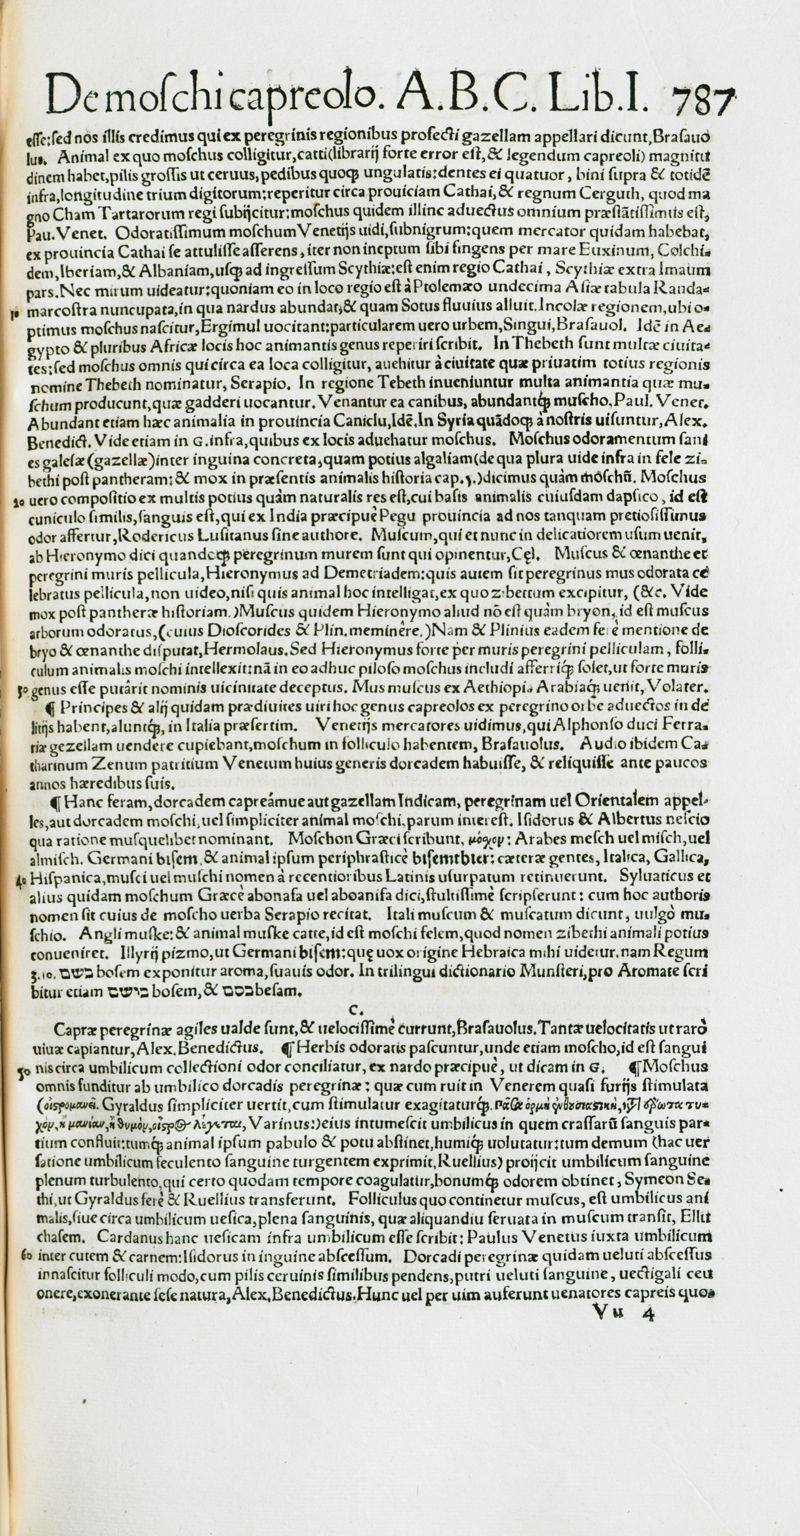 De moſchi capreolo. A.B.C. Lib.I. 787
eſſe: ſed nos illis credimus qui ex peregrinis regionibus profecti gazellam appellari dicunt, Braſauo
lus. Animal ex quo moſchus colligitur, catti (librarij forte error eſt, & legendum capreoli) magnitu
dinem habet, pilis groſſis ut ceruus, pedibus quoqꝫ ungulatis: dentes ei quatuor, bini ſupra & totidē
infra, longitudine trium digitorum: reperitur circa prouiciam Cathai, & regnum Cerguth, quod ma
gno Cham Tartarorum regi ſubijcitur: moſchus quidem illinc aduectus omnium præſtātiſſimus eſt,
Pau. Venet. Odoratiſſimum moſchum Venetijs uidi, ſubnigrum: quem mercator quidam habebat,
ex prouincia Cathai ſe attuliſſe aſſerens, iter non ineptum ſibi fingens per mare Euxinum, Colchi-
dem, Iberiam, & Albaniam, uſqꝫ ad ingreſſum Scythiæ: eſt enim regio Cathai, Scythiæ extra Imaum
pars. Nec mirum uideatur: quoniam eo in loco regio eſt à Ptolemæo undecima Aſiæ tabula Randa-
10 marcoſtra nuncupata, in qua nardus abundat, & quam Sotus fluuius alluit. Incolæ regionem, ubi o-
ptimus moſchus naſcitur, Ergimul uocitant: particularem uero urbem, Singui, Braſauol. Idē in Ae-
gypto & pluribus Africæ locis hoc animantis genus reperiri ſcribit. In Thebeth ſunt multæ ciuita-
tes: ſed moſchus omnis qui circa ea loca colligitur, auehitur à ciuitate quæ priuatim totius regionis
nomine Thebeth nominatur, Serapio. In regione Tebeth inueniuntur multa animantia quæ mu-
ſchum producunt, quæ gadderi uocantur. Venantur ea canibus, abundantqꝫ muſcho. Paul. Venet.
Abundant etiam hæc animalia in prouincia Caniclu, Idē. In Syria quādoqꝫ à noſtris uiſuntur, Alex.
Benedict. Vide etiam in G. infra, quibus ex locis aduehatur moſchus. Moſchus odoramentum ſani
es galeſæ (gazellæ) inter inguina concreta, quam potius algaliam (de qua plura uide infra in fele zi-
bethi poſt pantheram: & mox in præſentis animalis hiſtoria cap. 5.) dicimus quàm moſchū. Moſchus
20 uero compoſitio ex multis potius quàm naturalis res eſt, cui baſis animalis cuiuſdam dapſico, id eſt
cuniculo ſimilis, ſanguis eſt, qui ex India præcipuè Pegu prouincia ad nos tanquam pretioſiſſimus
odor affertur, Rodericus Luſitanus ſine authore. Muſcum, qui et nunc in delicatiorem uſum uenit,
ab Hieronymo dici quandoqꝫ peregrinum murem ſunt qui opinentur, Cęl. Muſcus & œnanthe et
peregrini muris pellicula, Hieronymus ad Demetriadem: quis autem ſit peregrinus mus odorata ce
lebratus pellicula, non uideo, niſi quis animal hoc intelligat, ex quo zibettum excipitur, (&c. Vide
mox poſt pantheræ hiſtoriam.) Muſcus quidem Hieronymo aliud nō eſt quàm bryon, id eſt muſcus
arborum odoratus, (cuius Dioſcorides & Plin. meminêre.) Nam & Plinius eadem ferè mentione de
bryo & œnanthe diſputat, Hermolaus. Sed Hieronymus forte per muris peregrini pelliculam, folli-
culum animalis moſchi intellexit: nā in eo adhuc piloſo moſchus includi afferriqꝫ ſolet, ut forte muris
30 genus eſſe putârit nominis uicinitate deceptus. Mus muſcus ex Aethiopia Arabiaqꝫ uenit, Volater.
¶ Principes & alij quidam prædiuites uiri hoc genus capreolos ex peregrino orbe aduectos in de
litijs habent, aluntqꝫ, in Italia præſertim. Venetijs mercatores uidimus, qui Alphonſo duci Ferra-
riæ gezellam uendere cupiebant, moſchum in folliculo habentem, Braſauolus. Audio ibidem Ca-
tharinum Zenum patritium Venetum huius generis dorcadem habuiſſe, & reliquiſſe ante paucos
annos hæredibus ſuis.
¶ Hanc feram, dorcadem capreámue aut gazellam Indicam, peregrinam uel Orientalem appel-
les, aut dorcadem moſchi, uel ſimpliciter animal moſchi, parum intereſt. Iſidorus & Albertus neſcio
qua ratione muſquelibet nominant. Moſchon Græci ſcribunt, μόσχον: Arabes meſch uel miſch, uel
almiſch. Germani biſem, & animal ipſum periphraſticè biſemthier: cæteræ gentes, Italica, Gallica,
40 Hiſpanica, muſci uel muſchi nomen à recentioribus Latinis uſurpatum retinuerunt. Syluaticus et
alius quidam moſchum Græcè abonafa uel aboanifa dici, ſtultiſſimè ſcripſerunt: cum hoc authoris
nomen ſit cuius de moſcho uerba Serapio recitat. Itali muſcum & muſcatum dicunt, uulgò mu-
ſchio. Angli muſke: & animal muſke catte, id eſt moſchi felem, quod nomen zibethi animali potius
conueniret. Illyrij pizmo, ut Germani biſem: quę uox origine Hebraica mihi uidetur. nam Regum
3.10. בשם boſem exponitur aroma, ſuauis odor. In trilingui dictionario Munſteri, pro Aromate ſcri
bitur etiam בישם boſem, & בסם beſam.
C.
Capræ peregrinæ agiles ualde ſunt, & uelociſſimè currunt, Braſauolus. Tantæ uelocitatis ut rarò
uiuæ capiantur, Alex. Benedictus. ¶ Herbis odoratis paſcuntur, unde etiam moſcho, id eſt ſangui
50 nis circa umbilicum collectioni odor conciliatur, ex nardo præcipuè, ut dicam in G. ¶ Moſchus
omnis funditur ab umbilico dorcadis peregrinæ: quæ cum ruit in Venerem quaſi furijs ſtimulata
(οἰστρομανεῖ. Gyraldus ſimpliciter uertit, cum ſtimulatur exagitaturqꝫ.
Varinus:) eius intumeſcit umbilicus in quem craſſarū ſanguis par-
tium confluit: tumqꝫ animal ipſum pabulo & potu abſtinet, humiqꝫ uolutatur: tum demum (hac uer
ſatione umbilicum feculento ſanguine turgentem exprimit, Ruellius) proijcit umbilicum ſanguine
plenum turbulento, qui certo quodam tempore coagulatur, bonumqꝫ odorem obtinet, Symeon Se-
thi, ut Gyraldus ferè & Ruellius transferunt. Folliculus quo continetur muſcus, eſt umbilicus ani
malis, ſiue circa umbilicum ueſica, plena ſanguinis, quæ aliquandiu ſeruata in muſcum tranſit, Ellu
chaſem. Cardanus hanc ueſicam infra umbilicum eſſe ſcribit: Paulus Venetus iuxta umbilicum
60 inter cutem & carnem: Iſidorus in inguine abſceſſum. Dorcadi peregrinæ quidam ueluti abſceſſus
innaſcitur folliculi modo, cum pilis ceruinis ſimilibus pendens, putri ueluti ſanguine, uectigali ceu
onere, exonerante ſeſe natura, Alex. Benedictus. Hunc uel per uim auferunt uenatores capreis quo-
Vu 4